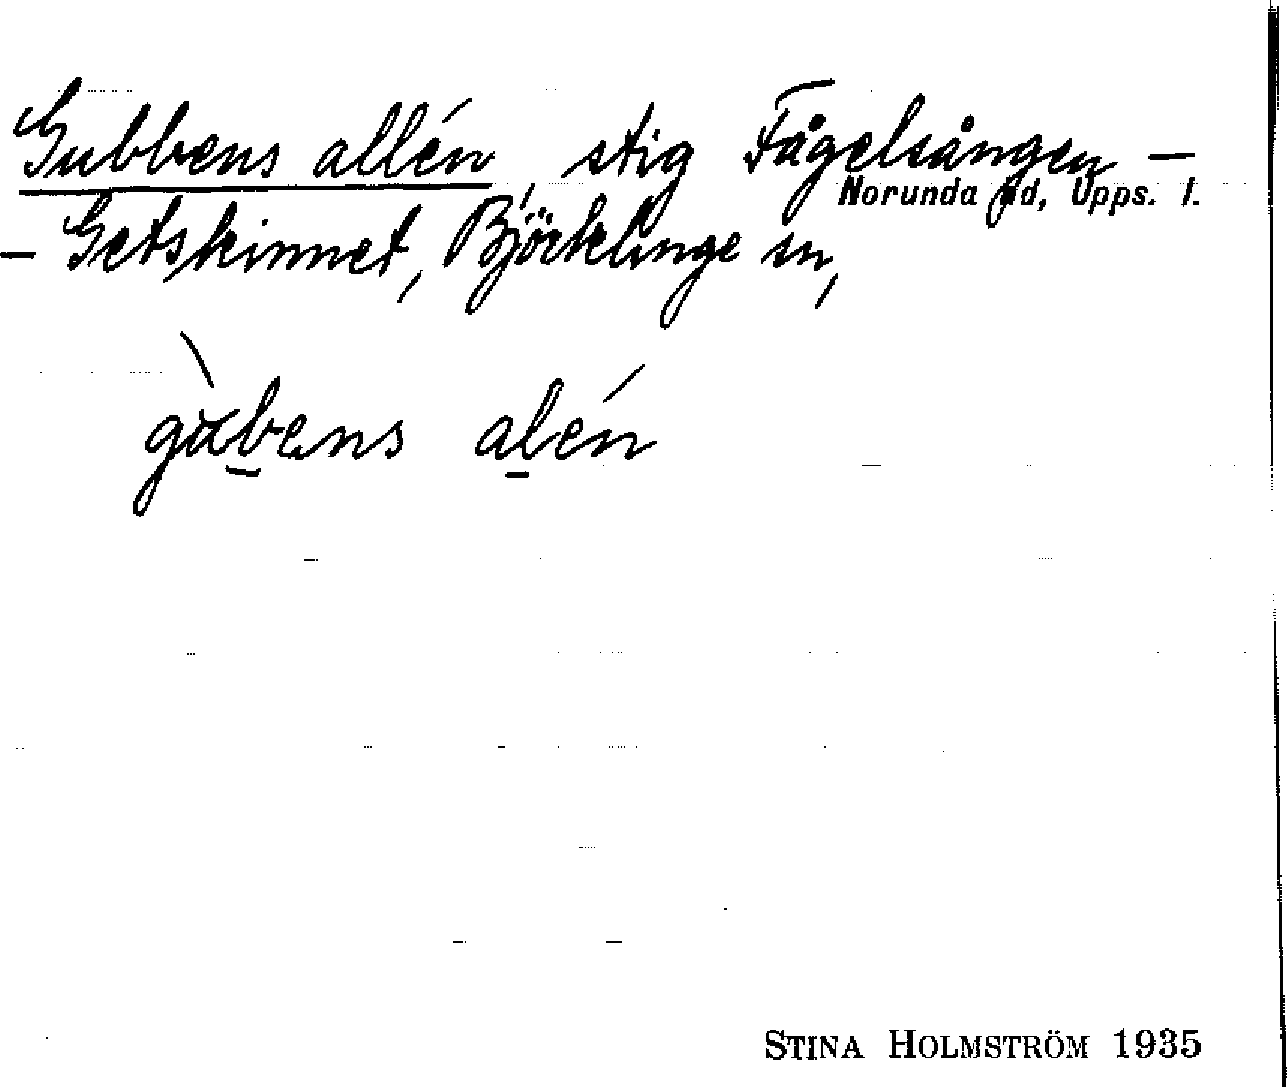 Gubbens allén, stig Fågelsången –
Norunda hd, Upps. l.
– Getskinnet, Björklinge sn,
gùbens alén
STINA HOLMSTRÖM 1935